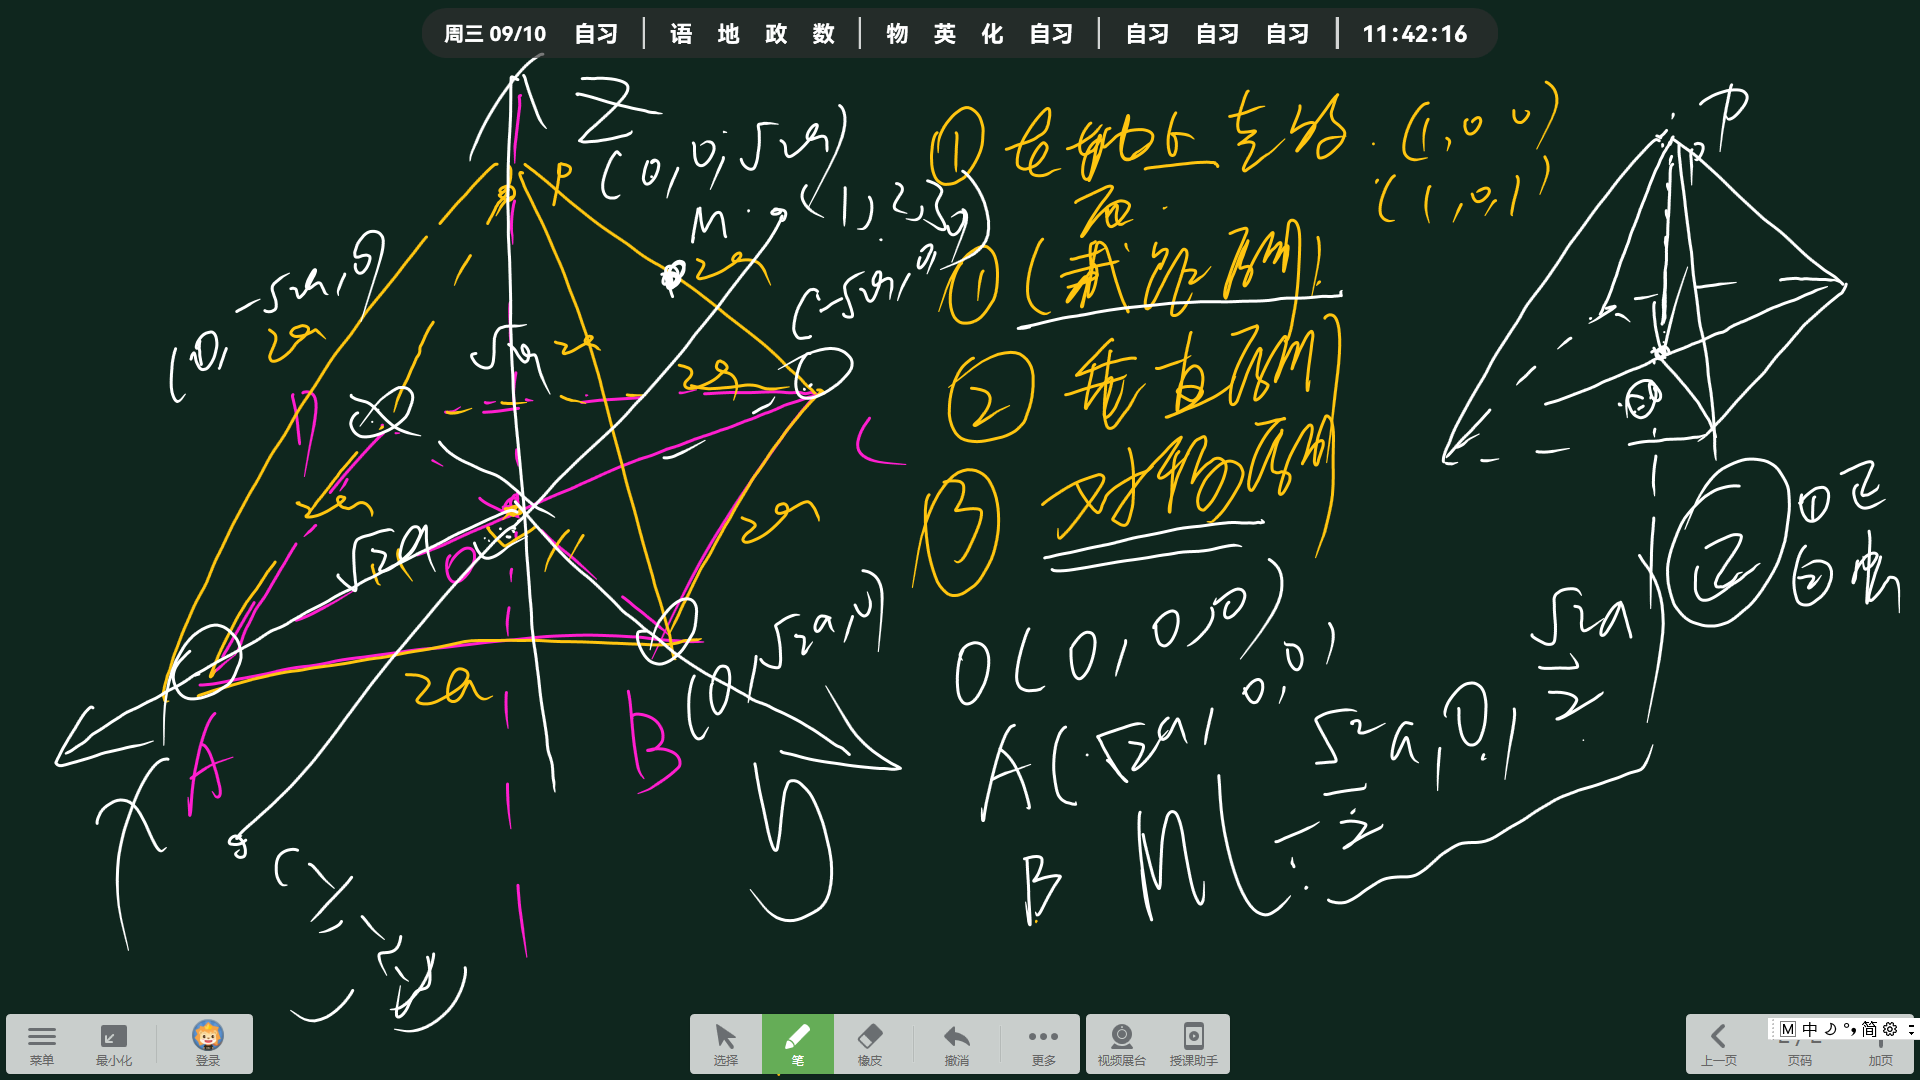 周三 09/10 自习 | 语 地 政 数 | 物 英 化 自习 | 自习 自习 自习 | 11:42:16
Z
P
(0,0,√2a)
M
(1,2,3)
2a
(0,-√2a,0)
2a
√2a
2a
2a
(-√2a,0,0)
D
C
2a
2a
√2a
O
2a
A
B
(0,√2a,0)
x
y
① 在轴上 (1,0,0)
(1,0,1)
① (截距原则)
② 垂直原则
③ 对称原则
O(0,0,0)
A(√2a,0,0)
B
M(-√2a/2,0,√2a/2)
P
②
①
②
菜单
最小化
登录
选择
笔
橡皮
撤消
更多
视频展台
授课助手
上一页
页码
加页
M 中 简